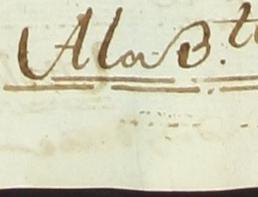 A la B.te